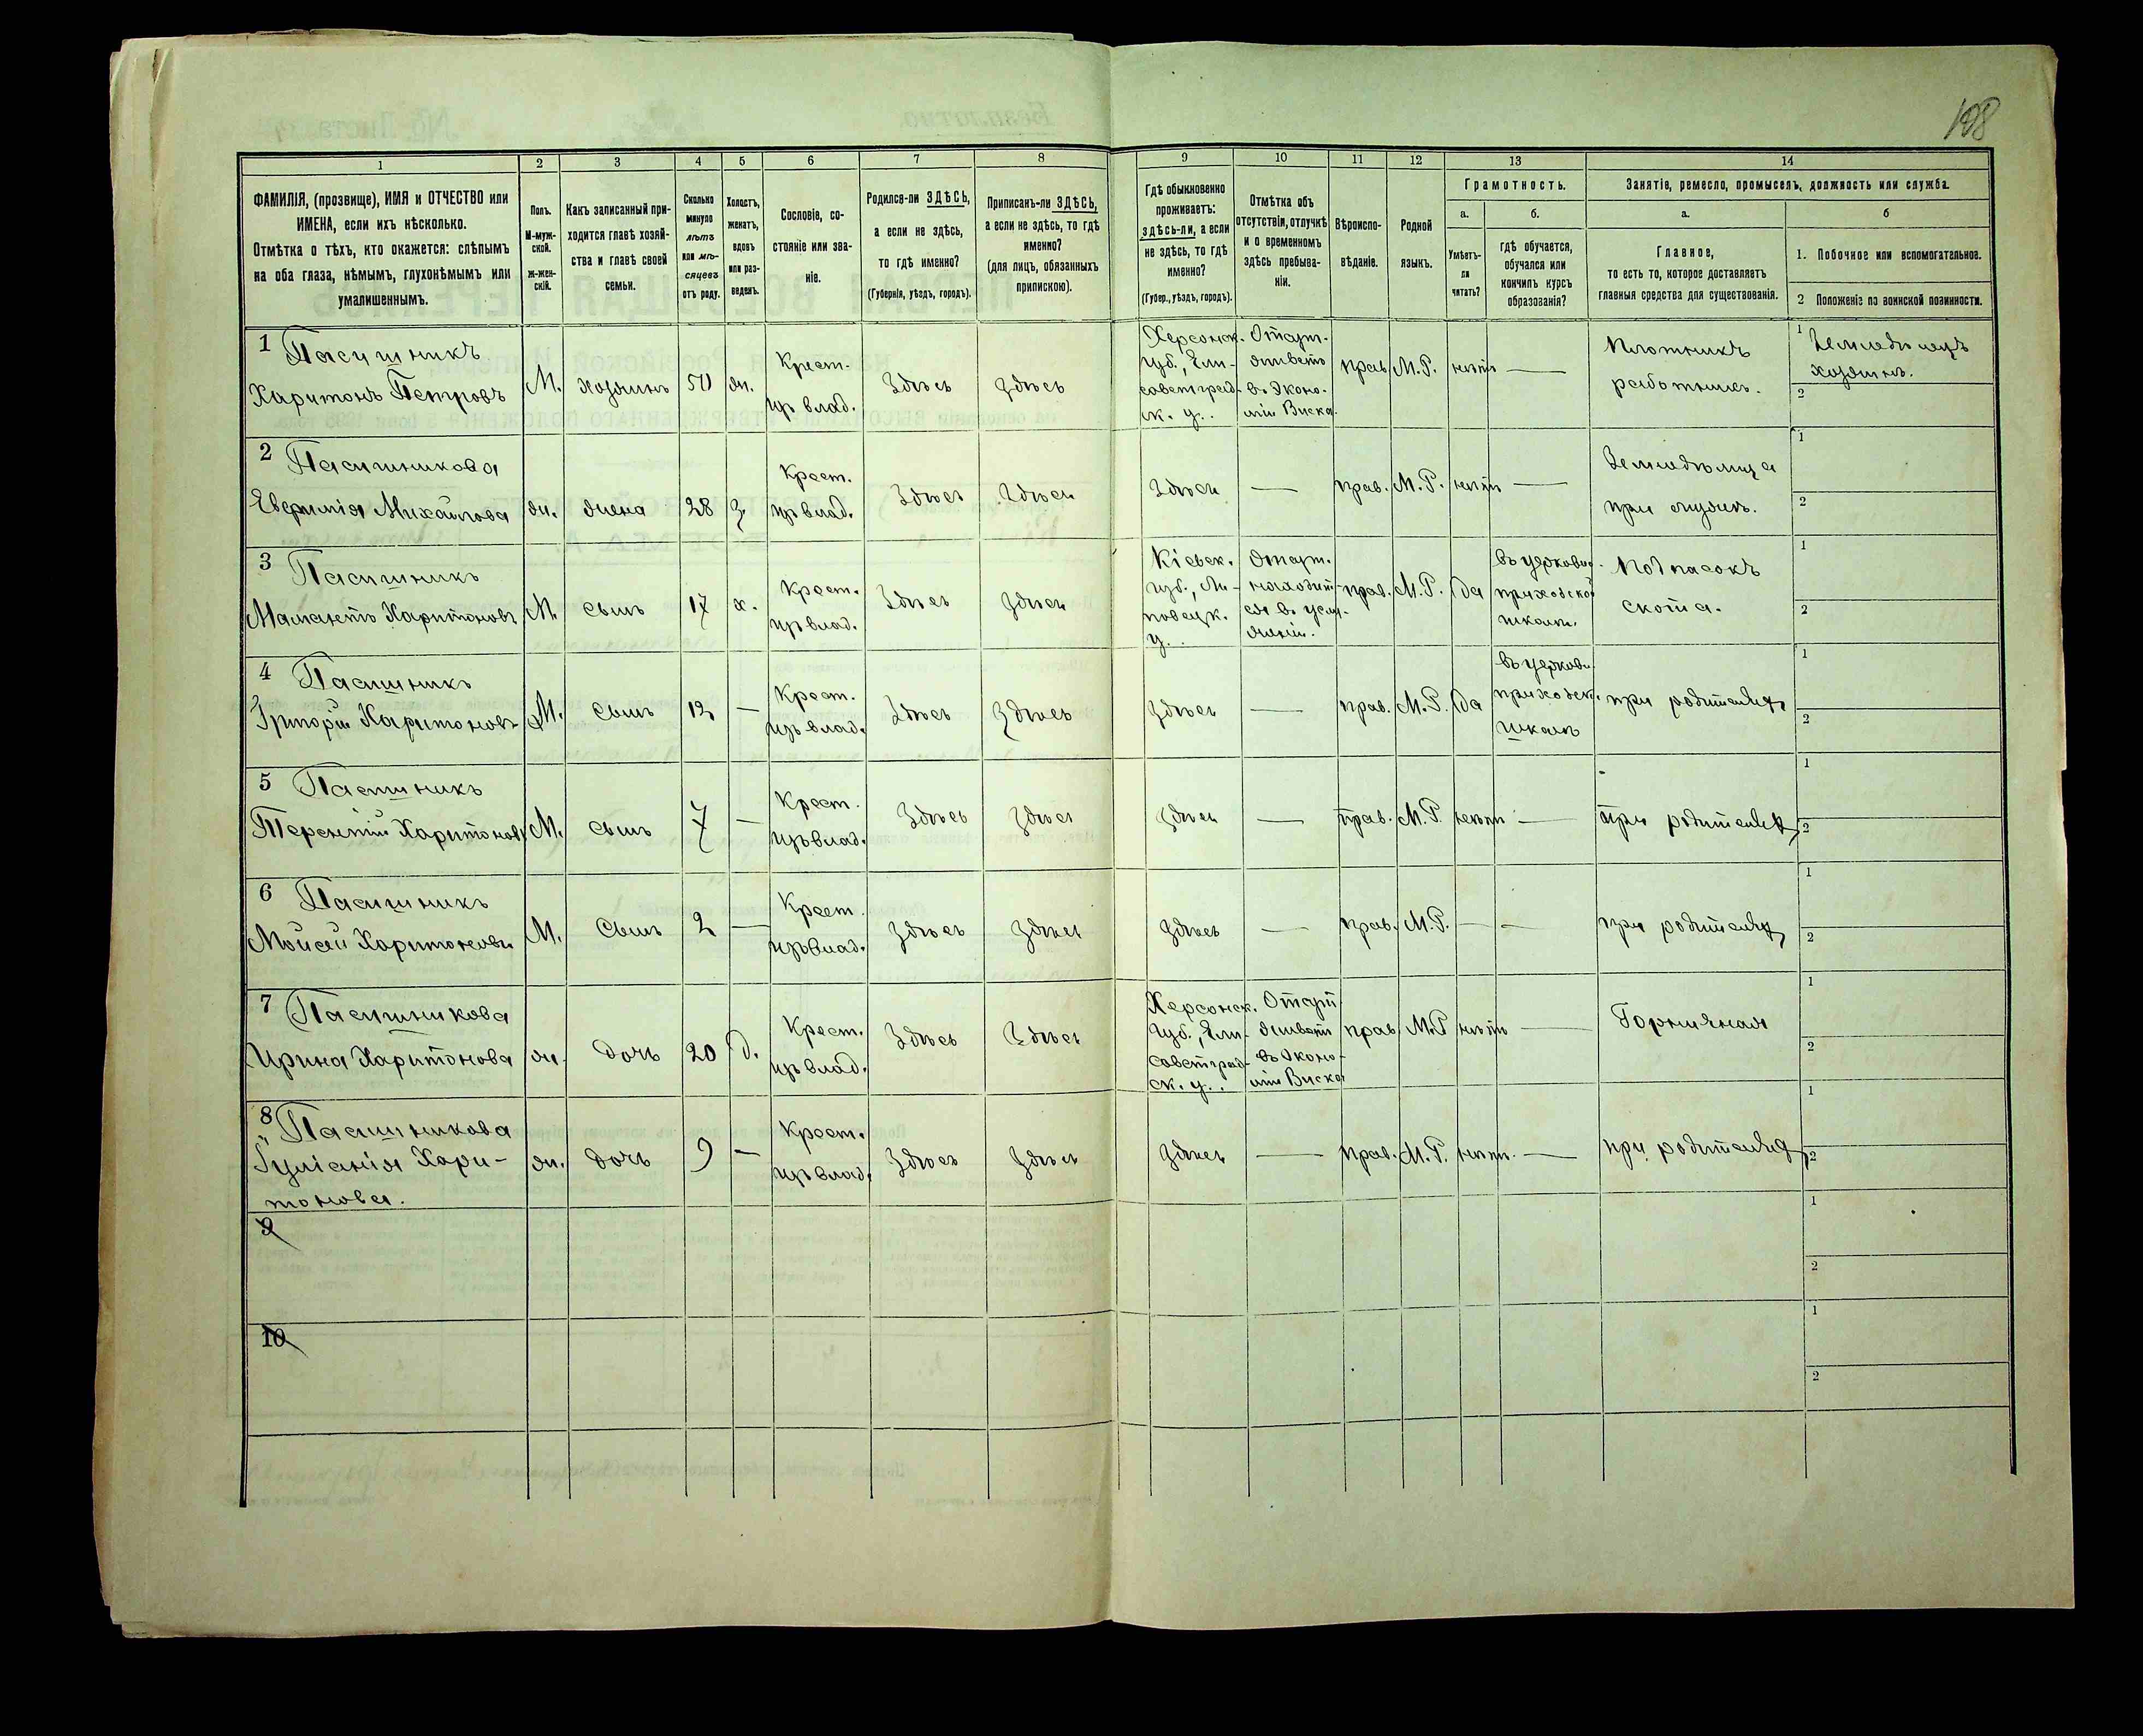 108
1 2 3 4 5 6 7 8 9 10 11 12 13 14
ФАМИЛІЯ, (прозвище), ИМЯ и ОТЧЕСТВО или
ИМЕНА, если ихъ нѣсколько.
Отмѣтка о тѣхъ, кто окажется: слѣпымъ
на оба глаза, нѣмымъ, глухонѣмымъ или
умалишеннымъ.
Полъ.
М-муж-
ской.
Ж-жен-
скій.
Какъ записанный при-
ходится главѣ хозяй-
ства и главѣ своей
семьи.
Сколько
минуло
лѣтъ
или мѣ-
сяцевъ
отъ роду.
Холостъ,
женатъ,
вдовъ
или раз-
веденъ.
Сословіе, со-
стояніе или зва-
ніе.
Родился-ли ЗДѢСЬ,
а если не здѣсь,
то гдѣ именно?
(Губернія, уѣздъ, городъ).
Приписанъ-ли ЗДѢСЬ,
а если не здѣсь, то гдѣ
именно?
(для лицъ, обязанныхъ
припискою).
Гдѣ обыкновенно
проживаетъ:
здѣсь-ли, а если
не здѣсь, то гдѣ
именно?
(Губер., уѣздъ, городъ).
Отмѣтка объ
отсутствіи, отлучкѣ
и о временномъ
здѣсь пребыва-
ніи.
Вѣроиспо-
вѣданіе.
Родной
языкъ.
Грамотность.
а.
Умѣетъ-
ли
читать?
б.
гдѣ обучается,
обучался или
кончилъ курсъ
образованія?
Занятіе, ремесло, промыселъ, должность или служба.
а.
Главное,
то есть то, которое доставляетъ
главныя средства для существованія.
б
1. Побочное или вспомогательное.
2 Положеніе по воинской повинности.
1 Пасишникъ
Харитонъ Петровъ
М.
хозяинъ
50
ж.
Крест.
изъ влад.
Здѣсь
Здѣсь
Херсонск.
губ., Ели-
саветград-
ск. у.
Отсут.
живетъ
въ эконо-
міи Виска.
прав.
М.Р.
нѣтъ
—
Плотникъ
работникъ.
1 Земледѣлецъ
хозяинъ.
2
2 Пасишникова
Евфимія Михайлова
ж.
жена
28
з.
Крест.
изъ влад.
Здѣсь
Здѣсь
Здѣсь
—
прав.
М.Р.
нѣтъ
—
Земледѣлица
при мужѣ.
1
2
3 Пасишникъ
Мамантъ Харитоновъ
М.
сынъ
17
х.
Крест.
изъ влад.
Здѣсь
Здѣсь
Кіевск.
губ., Ли-
повецк.
у.
Отсут.
находит-
ся въ услу-
женіи.
прав.
М.Р.
да
въ церковно-
приходской
школѣ.
Подпасокъ
скота.
1
2
4 Пасишникъ
Григорій Харитоновъ
М.
сынъ
12
—
Крест.
изъ влад.
Здѣсь
Здѣсь
Здѣсь
—
прав.
М.Р.
да
въ церковн.
приходск.
школѣ
при родителяхъ
1
2
5 Пасишникъ
Терентій Харитоновъ
М.
сынъ
7
—
Крест.
изъ влад.
Здѣсь
Здѣсь
Здѣсь
—
прав.
М.Р.
нѣтъ
—
при родителяхъ
1
2
6 Пасишникъ
Мойсей Харитоновъ
М.
сынъ
2
—
Крест.
изъ влад.
Здѣсь
Здѣсь
Здѣсь
—
прав.
М.Р.
—
—
при родителяхъ
1
2
7 Пасишникова
Ирина Харитонова
ж.
дочь
20
д.
Крест.
изъ влад.
Здѣсь
Здѣсь
Херсонск.
губ., Ели-
саветград-
ск. у.
Отсут
живетъ
въ эконо-
міи Виска
прав.
М.Р
нѣтъ
—
Горничная
1
2
8 Пасишникова
Іуліанія Хари-
тонова.
ж.
дочь
9
—
Крест.
изъ влад.
Здѣсь
Здѣсь
Здѣсь
—
прав.
М.Р.
нѣтъ.
—
при родителяхъ
1
2
9
1
2
10
1
2